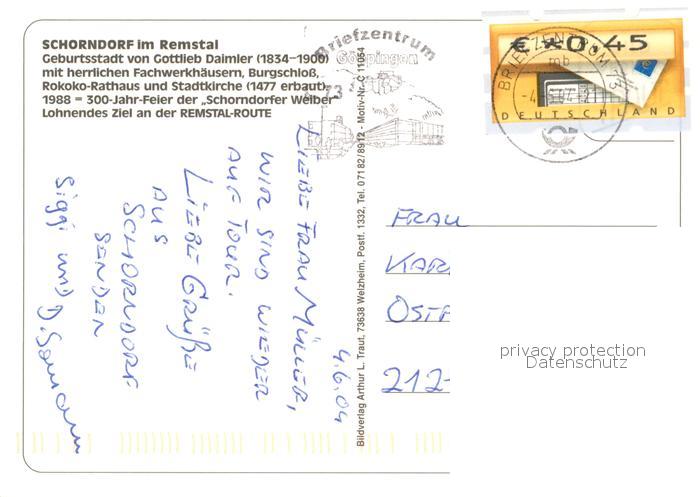 SCHORNDORF im Remstal
Geburtsstadt von Gottlieb Daimler (1834–1900)
mit herrlichen Fachwerkhäusern, Burgschloß,
Rokoko-Rathaus und Stadtkirche (1477 erbaut)
1988 = 300-Jahr-Feier der „Schorndorfer Weiber"
Lohnendes Ziel an der REMSTAL-ROUTE
Briefzentrum
Göppingen
73
BRIEFZENTRUM 73
mb
€ *0,45
DEUTSCHLAND
4.6.04
LIEBE FRAU MÜLLER,
WIR SIND WIEDER
AUF TOUR.
LIEBE GRÜßE
AUS
SCHORNDORF
SENDEN
Siggi und
Bildverlag Arthur L. Traut, 73638 Welzheim, Postf. 1332, Tel. 07182/8912 - Motiv-Nr. C 11054
FRAU
KAR
OST
212
privacy protection
Datenschutz